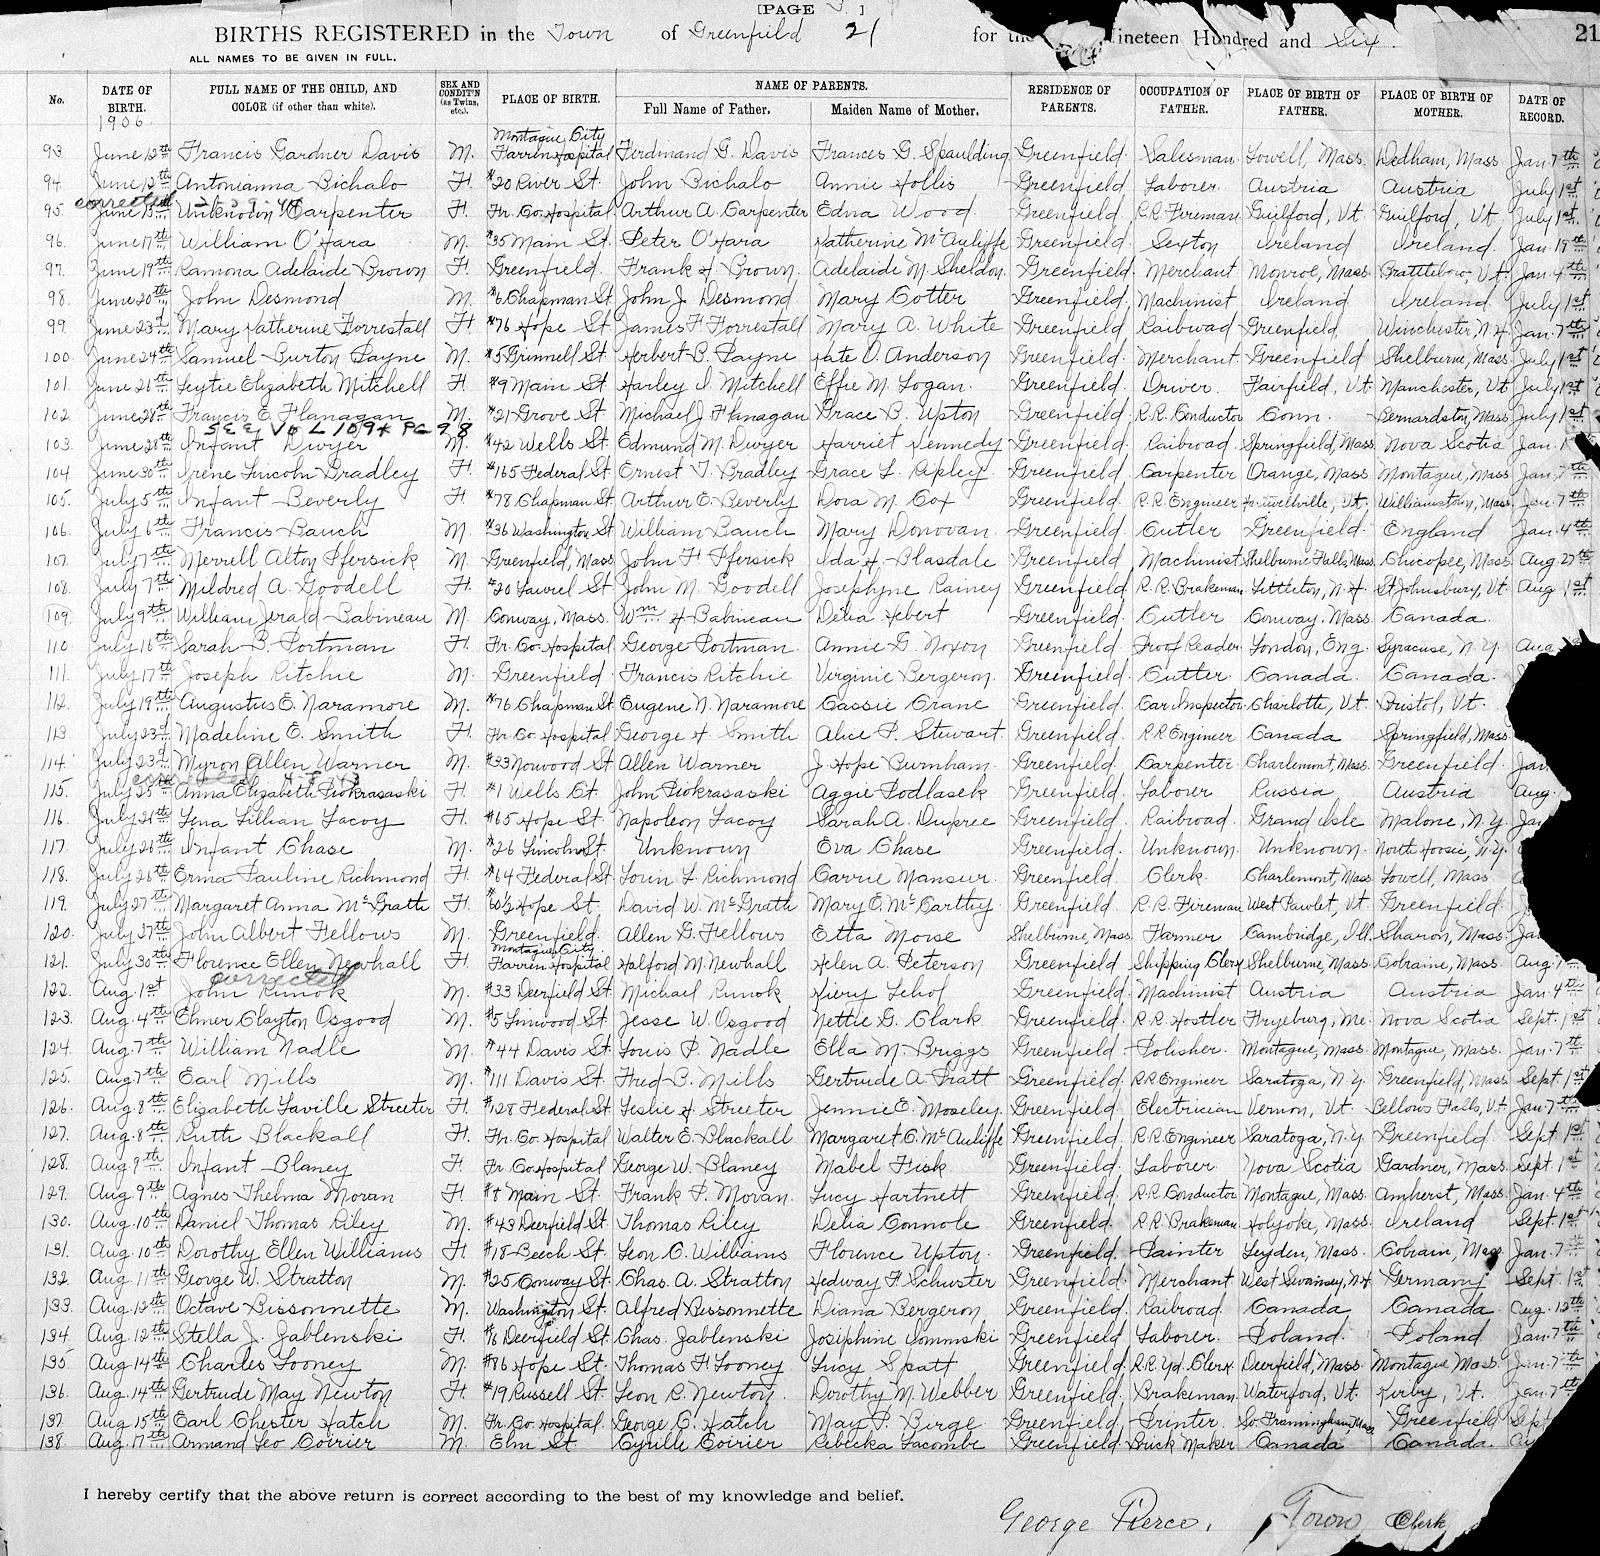 [PAGE ]
BIRTHS REGISTERED in the Town of Greenfield 21 for the Nineteen Hundred and Six. 21
ALL NAMES TO BE GIVEN IN FULL.
No. DATE OF BIRTH. 1906 FULL NAME OF THE CHILD, AND COLOR (if other than white). SEX AND CONDIT'N (as Twins, etc.). PLACE OF BIRTH. NAME OF PARENTS. Full Name of Father. Maiden Name of Mother. RESIDENCE OF PARENTS. OCCUPATION OF FATHER. PLACE OF BIRTH OF FATHER. PLACE OF BIRTH OF MOTHER. DATE OF RECORD.
Montague City
93 June 12th Francis Gardner Davis M. Farren Hospital Ferdinand G. Davis Frances G. Spaulding Greenfield Salesman Lowell, Mass. Dedham, Mass Jan. 7th
94. June 12th Antonianna Bichalo F. #20 River St. John Bichalo Annie Hollis Greenfield Laborer Austria Austria July 1st
corrected
95 June 15th Unknown Carpenter F. Fr. Co. Hospital Arthur A. Carpenter Edna Wood Greenfield R.R. Fireman Guilford, Vt. Guilford, Vt. July 1st
96. June 17th William O'Hara M. #35 Main St. Peter O'Hara Katherine McAuliffe Greenfield Sexton Ireland Ireland. Jan. 18th
97. June 19th Ramona Adelaide Brown F. Greenfield. Frank H. Brown. Adelaide M. Sheldon. Greenfield Merchant Monroe, Mass. Brattleboro, Vt. Jan. 4th
98. June 20th John Desmond M. #6 Chapman St. John J. Desmond. Mary Cotter Greenfield. Machinist Ireland Ireland July 1st
99. June 23d Mary Katherine Forrestall F. #76 Hope St. James F. Forrestall Mary A. White Greenfield. Railroad Greenfield. Winchester N.H. Jan. 7th
100. June 24th Samuel Burton Payne M. #5 Grinnell St. Herbert B. Payne Kate D. Anderson Greenfield. Merchant Greenfield Shelburne, Mass. July 1st
101. June 26th Leytie Elizabeth Mitchell F. #9 Main St. Harley D. Mitchell Effie M. Logan. Greenfield. Driver Fairfield, Vt. Manchester, Vt. July 1st
102. June 28th Francis E. Flanagan M. #21 Grove St. Michael J. Flanagan Grace B. Upton Greenfield R.R. Conductor Conn. Bernardston, Mass July 1st
SEE VOL 1094 PG 98
103. June 28th Infant Dwyer M. #42 Wells St. Edmund M. Dwyer Harriet Kennedy Greenfield. Railroad Springfield, Mass. Nova Scotia Jan.
104. June 30th Irene Lincoln Bradley F. #165 Federal St. Ernest T. Bradley Grace L. Ripley. Greenfield. Carpenter Orange, Mass Montague, Mass Jan. 7
105. July 5th Infant Beverly F. #78 Chapman St. Arthur E. Beverly Dora M. Cox Greenfield. R.R. Engineer Vt. Williamstown, Mass. Jan. 7th
106. July 6th Francis Bauch M. #36 Washington St. William Bauch Mary Donovan. Greenfield. Cutler Greenfield. England Jan. 4th
107. July 7th Merrell Alton Pfersick M. Greenfield, Mass. John F. Pfersick Ida H. Blasdale Greenfield Machinist Shelburne Falls, Mass Chicopee, Mass. Aug 27th
108. July 7th Mildred A. Goodell F. #20 Laurel St. John M. Goodell Josephyne Rainey Greenfield. R.R. Brakeman Littleton, N.H. St. Johnsbury, Vt. Aug. 1st
109. July 9th William Jerald Babineau M. Conway, Mass. Wm. H. Babineau Delia Hebert Greenfield. Cutler Conway, Mass. Canada.
110. July 16th Sarah B. Portman F. Fr. Co. Hospital George Portman. Annie G. Noxon Greenfield. Proof Reader London, Eng. Syracuse, N.Y. Aug
111. July 17th Joseph Ritchie M. Greenfield. Francis Ritchie Virginie Bergeron. Greenfield. Cutter Canada. Canada.
112. July 19th Augustus E. Naramore M. #76 Chapman St. Eugene N. Naramore Cassie Crane Greenfield. Car Inspector Charlotte, Vt. Bristol, Vt.
113. July 23d Madeline E. Smith F. Fr. Co. Hospital George H. Smith Alice P. Stewart Greenfield. R.R. Engineer Canada Springfield, Mass.
114. July 23d Myron Allen Warner M. #33 Norwood St. Allen Warner J. Hope Burnham. Greenfield. Carpenter Charlemont, Mass. Greenfield. Jan.
corrected 4-8-43
115. July 25th Anna Elizabeth Piokrasaski F. #1 Wells Ct. John Piokrasaski Aggie Podlasek Greenfield. Laborer Russia Austria Aug.
116. July 26th Lena Lillian Lacoy F. #65 Hope St. Napoleon Lacoy Sarah A. Dupree Greenfield. Railroad. Grand Isle Malone, N.Y. Jan
117. July 26th Infant Chase M. #26 Lincoln St. Unknown Eva Chase Greenfield. Unknown. Unknown. North Hoosic, N.Y.
118. July 26th Erma Pauline Richmond F. #64 Federal St. Lorin L. Richmond Carrie Mansur. Greenfield. Clerk Charlemont, Mass Lowell, Mass
119. July 27th Margaret Anna McGrath F. 60½ Hope St. David W. McGrath Mary E. McCarthy Greenfield. R.R. Fireman West Pawlet, Vt. Greenfield.
120. July 27th John Albert Fellows M. Greenfield. Allen G. Fellows Etta Morse Shelburne, Mass. Farmer Cambridge, Ill. Sharon, Mass. Jan
Montague City
121. July 30th Florence Ellen Newhall F. Farren Hospital Halford M. Newhall Helen A. Peterson Greenfield. Shipping Clerk Shelburne, Mass. Colraine, Mass. Aug.
corrected
122. Aug. 1st John Rimok M. #33 Deerfield St. Michael Rimok Greenfield. Machinist Austria Austria Jan. 4th
123. Aug. 4th Elmer Clayton Osgood M. #5 Linwood St. Jesse W. Osgood Nettie G. Clark Greenfield. R.R. Hostler Fryeburg, Me. Nova Scotia Sept. 1st
124. Aug. 7th William Nadle M. #44 Davis St. Louis P. Nadle Ella M. Briggs Greenfield Polisher. Montague, Mass. Montague, Mass. Jan. 7th
125. Aug 7th Earl Mills M. #111 Davis St. Fred B. Mills Gertrude A. Pratt Greenfield. R.R. Engineer Saratoga, N.Y. Greenfield, Mass. Sept. 1st
126. Aug. 8th Elizabeth Laville Streeter F. #128 Federal St. Leslie H. Streeter Jennie E. Moseley. Greenfield. Electrician Vernon, Vt. Bellows Falls, Vt. Jan. 7th
127. Aug. 8th Ruth Blackall F. Fr. Co. Hospital Walter E. Blackall Margaret C. McAuliffe Greenfield. R.R. Engineer Saratoga, N.Y. Greenfield. Sept. 1st
128. Aug. 9th Infant Blaney F. Fr. Co. Hospital George W. Blaney Mabel Fisk Greenfield. Laborer Nova Scotia Gardner, Mass. Sept. 1st
129. Aug. 9th Agnes Thelma Moran F. #8 Main St. Frank P. Moran. Lucy Hartnett Greenfield R.R. Conductor Montague, Mass. Amherst, Mass. Jan. 4th
130. Aug. 10th Daniel Thomas Riley M. #43 Deerfield St. Thomas Riley Delia Connole Greenfield. R.R. Brakeman Holyoke, Mass. Ireland Sept. 1st
131. Aug. 10th Dorothy Ellen Williams F. #18 Beech St. Leon C. Williams Florence Upton. Greenfield. Painter Leyden, Mass. Colrain, Mass. Jan. 7th
132. Aug. 11th George W. Stratton M. #25 Conway St. Chas. A. Stratton Hedway F. Schuster Greenfield. Merchant West Swansey, N.H. Germany Sept. 1st
133. Aug. 12th Octave Bissonnette M. Washington St. Alfred Bissonnette Diana Bergeron. Greenfield. Railroad. Canada Canada Aug. 12th
134. Aug. 12th Stella J. Jablenski F. #6 Deerfield St. Chas. Jablenski Josephine Greenfield. Laborer. Poland. Poland Jan. 7th
135. Aug. 14th Charles Looney M. #86 Hope St. Thomas F. Looney Lucy Spatt Greenfield. R.R. Yd. Clerk Deerfield, Mass. Montague Mass. Jan. 7th
136. Aug. 14th Gertrude May Newton F. #19 Russell St. Leon R. Newton. Dorothy M. Webber Greenfield. Brakeman. Waterford, Vt. Kirby, Vt. Jan. 7th
137. Aug. 15th Earl Chester Hatch M. Fr. Co. Hospital. George C. Hatch May P. Birge Greenfield. Printer So. Framingham, Mass. Greenfield Sept
138. Aug. 17th Armand Leo Coirier M. Elm St. Cyrille Coirier Rebecka Lacombe Greenfield. Brick Maker Canada Canada.
I hereby certify that the above return is correct according to the best of my knowledge and belief.
George Pierce. Town Clerk